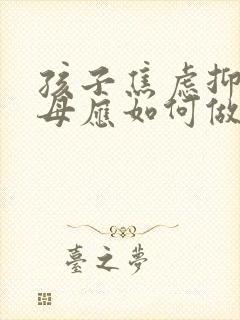 孩子焦虑抑
母应如何做
臺之夢